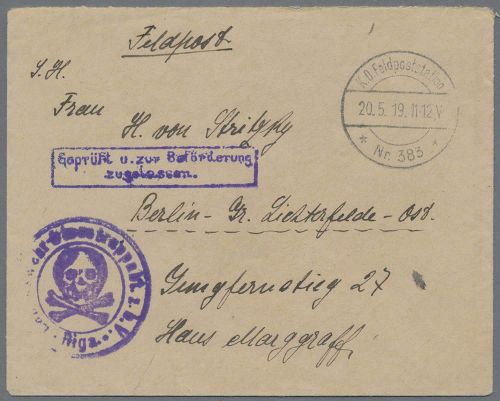 Feldpost.
S. H.
K.D. Feldpoststation
20.5.19.11-12V
* Nr. 383 *
Frau
H. von Stritzky
Geprüft u. zur Beförderung
zugelassen.
Berlin - Gr. Lichterfelde - Ost.
Jungfernstieg 27
Haus Marggraff.
z.b.V.
Riga